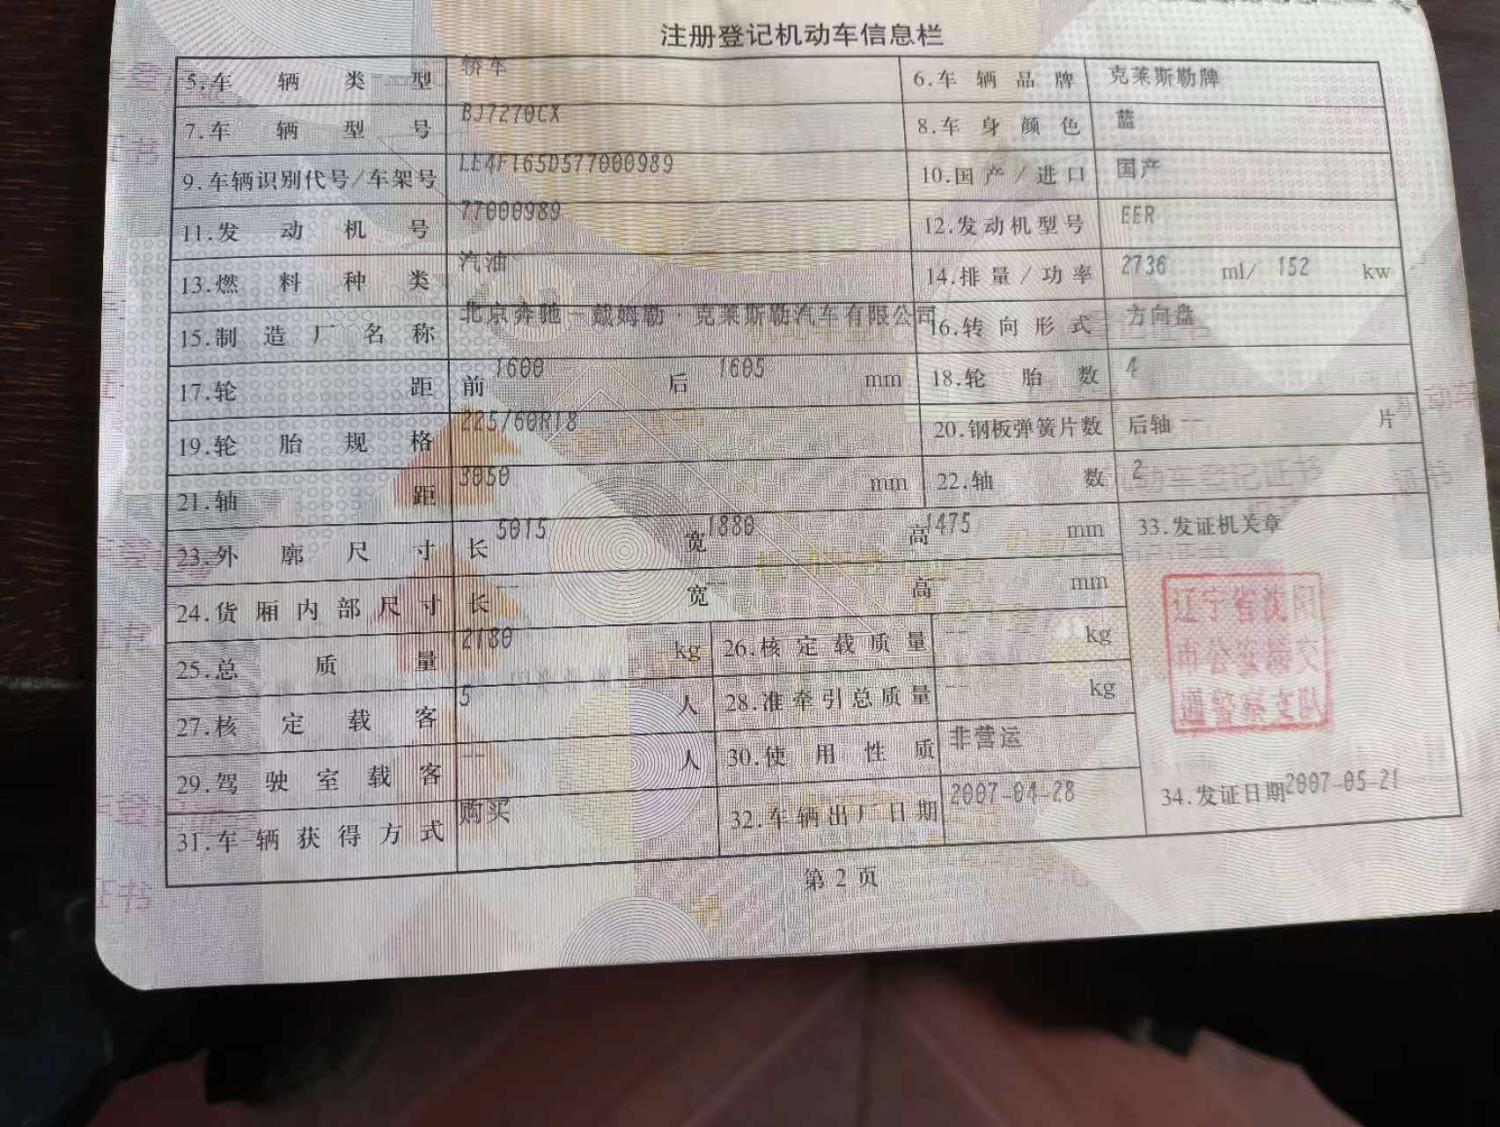 注册登记机动车信息栏
5.车辆类型 轿车 6.车辆品牌 克莱斯勒牌
7.车辆型号 BJ7270CX 8.车身颜色 蓝
9.车辆识别代号/车架号 LE4F165D577000989 10.国产/进口 国产
11.发动机号 77000989 12.发动机型号 EER
13.燃料种类 汽油 14.排量/功率 2736 ml/ 152 kw
15.制造厂名称 北京奔驰-戴姆勒·克莱斯勒汽车有限公司 16.转向形式 方向盘
17.轮距 前 1600 后 1605 mm 18.轮胎数 4
19.轮胎规格 225/60R18 20.钢板弹簧片数 后轴 -- 片
21.轴距 3050 mm 22.轴数 2
23.外廓尺寸 长 5015 宽 1880 高 1475 mm 33.发证机关章
24.货厢内部尺寸 长 -- 宽 -- 高 mm
25.总质量 2180 kg 26.核定载质量 -- kg
27.核定载客 5 人 28.准牵引总质量 -- kg
29.驾驶室载客 -- 人 30.使用性质 非营运
31.车辆获得方式 购买 32.车辆出厂日期 2007-04-28 34.发证日期 2007-05-21
辽宁省沈阳
市公安局交
通警察支队
第2页